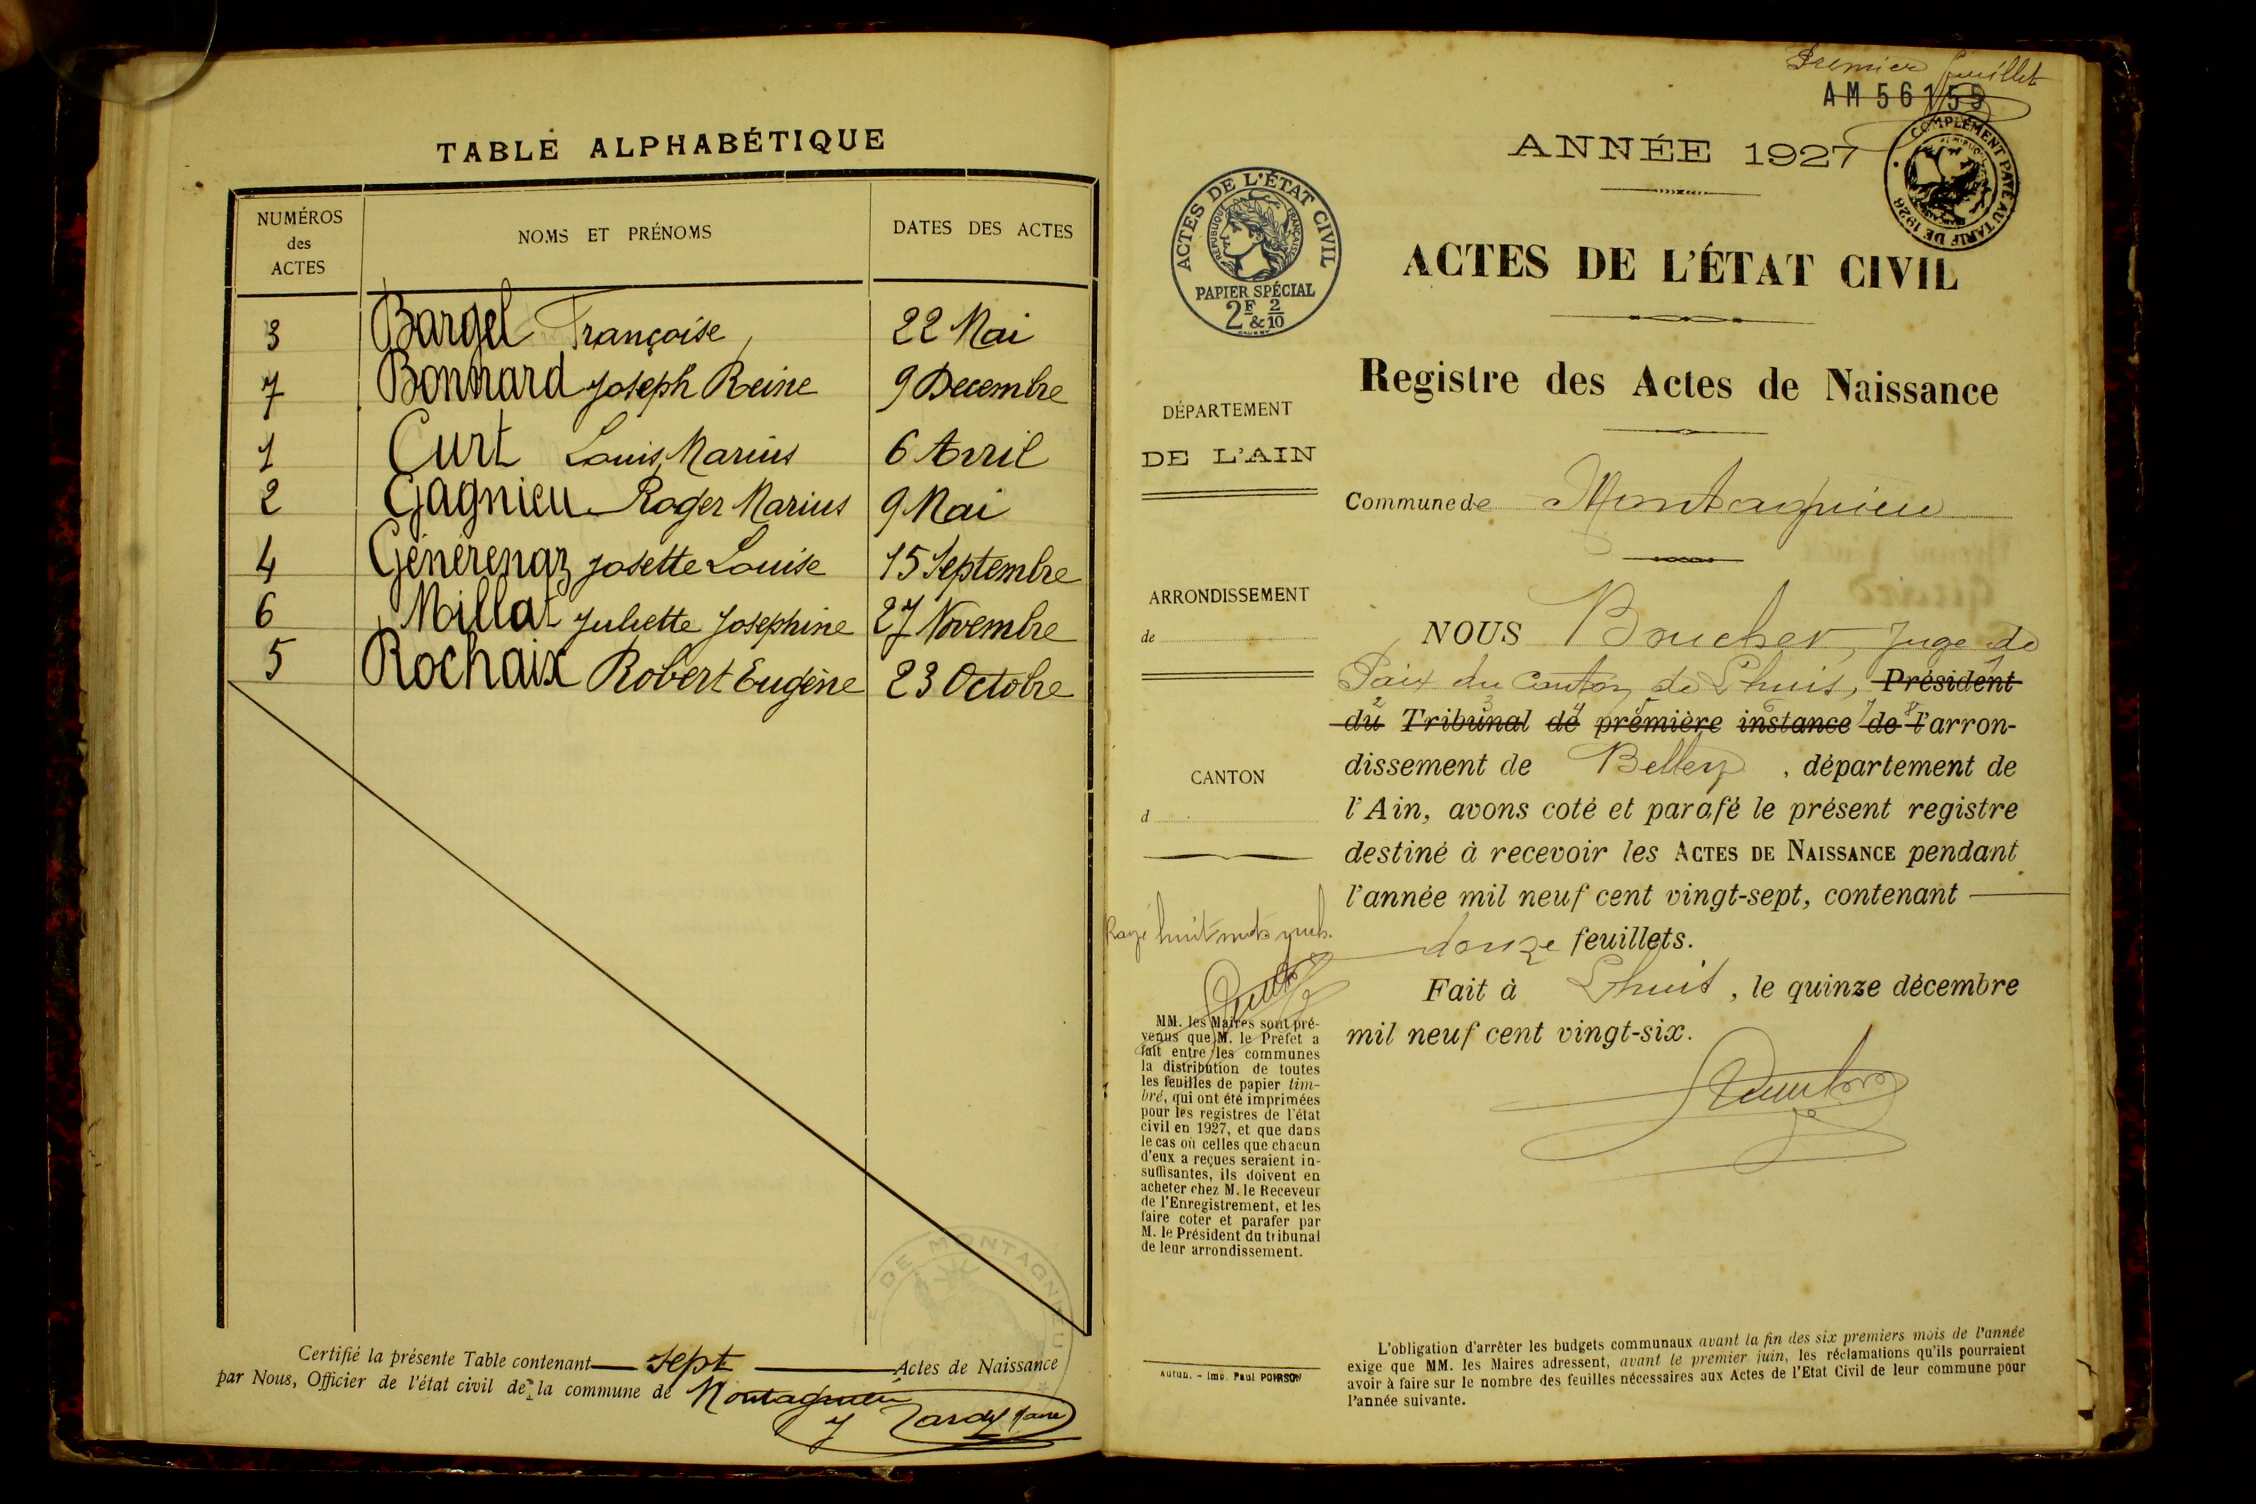 TABLE ALPHABÉTIQUE
NUMÉROS
des
ACTES
NOMS ET PRÉNOMS
DATES DES ACTES
3 Bargel Françoise, 22 Mai
7 Bonnard Joseph Reine 9 Decembre
1 Curt Louis Marius 6 Avril
2 Gagnieu Roger Marius 9 Mai
4 Génerenaz Josette Louise 15 Septembre
6 Millat Juliette Josephine 27 Novembre
5 Rochaix Robert Eugène 23 Octobre
DE MONTAGNIEU
Certifié la présente Table contenant sept Actes de Naissance
par Nous, Officier de l'état civil de la commune de Montagnieu
J Tardy Maire
Premier feuillet
AM 56155
COMPLÉMENT PAYÉ AU TARIF DE 1926
ANNÉE 1927
ACTES DE L'ÉTAT CIVIL
RÉPUBLIQUE FRANÇAISE
PAPIER SPÉCIAL
2F & 2/10
ACTES DE L'ÉTAT CIVIL
Registre des Actes de Naissance
DÉPARTEMENT
DE L'AIN
Commune de Montagnieu
ARRONDISSEMENT
de
CANTON
d
NOUS Boucher, Juge de
Paix du Canton de Lhuis, Président
du Tribunal de première instance de l'arron-
dissement de Belley, département de
l'Ain, avons coté et parafé le présent registre
destiné à recevoir les ACTES DE NAISSANCE pendant
l'année mil neuf cent vingt-sept, contenant
douze feuillets.
Fait à Lhuis, le quinze décembre
mil neuf cent vingt-six.
Rayé huit mots
MM. les Maires sont pré-
venus que M. le Préfet a
fait entre les communes
la distribution de toutes
les feuilles de papier tim-
bré, qui ont été imprimées
pour les registres de l'état
civil en 1927, et que dans
le cas où celles que chacun
d'eux a reçues seraient in-
suffisantes, ils doivent en
acheter chez M. le Receveur
de l'Enregistrement, et les
faire coter et parafer par
M. le Président du tribunal
de leur arrondissement.
Autun. - Imp. Paul POIRSON
L'obligation d'arrêter les budgets communaux avant la fin des six premiers mois de l'année
exige que MM. les Maires adressent, avant le premier juin, les réclamations qu'ils pourraient
avoir à faire sur le nombre des feuilles nécessaires aux Actes de l'Etat Civil de leur commune pour
l'année suivante.